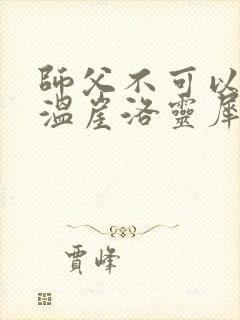 師父不可以
溫崖洛靈犀
賈峰